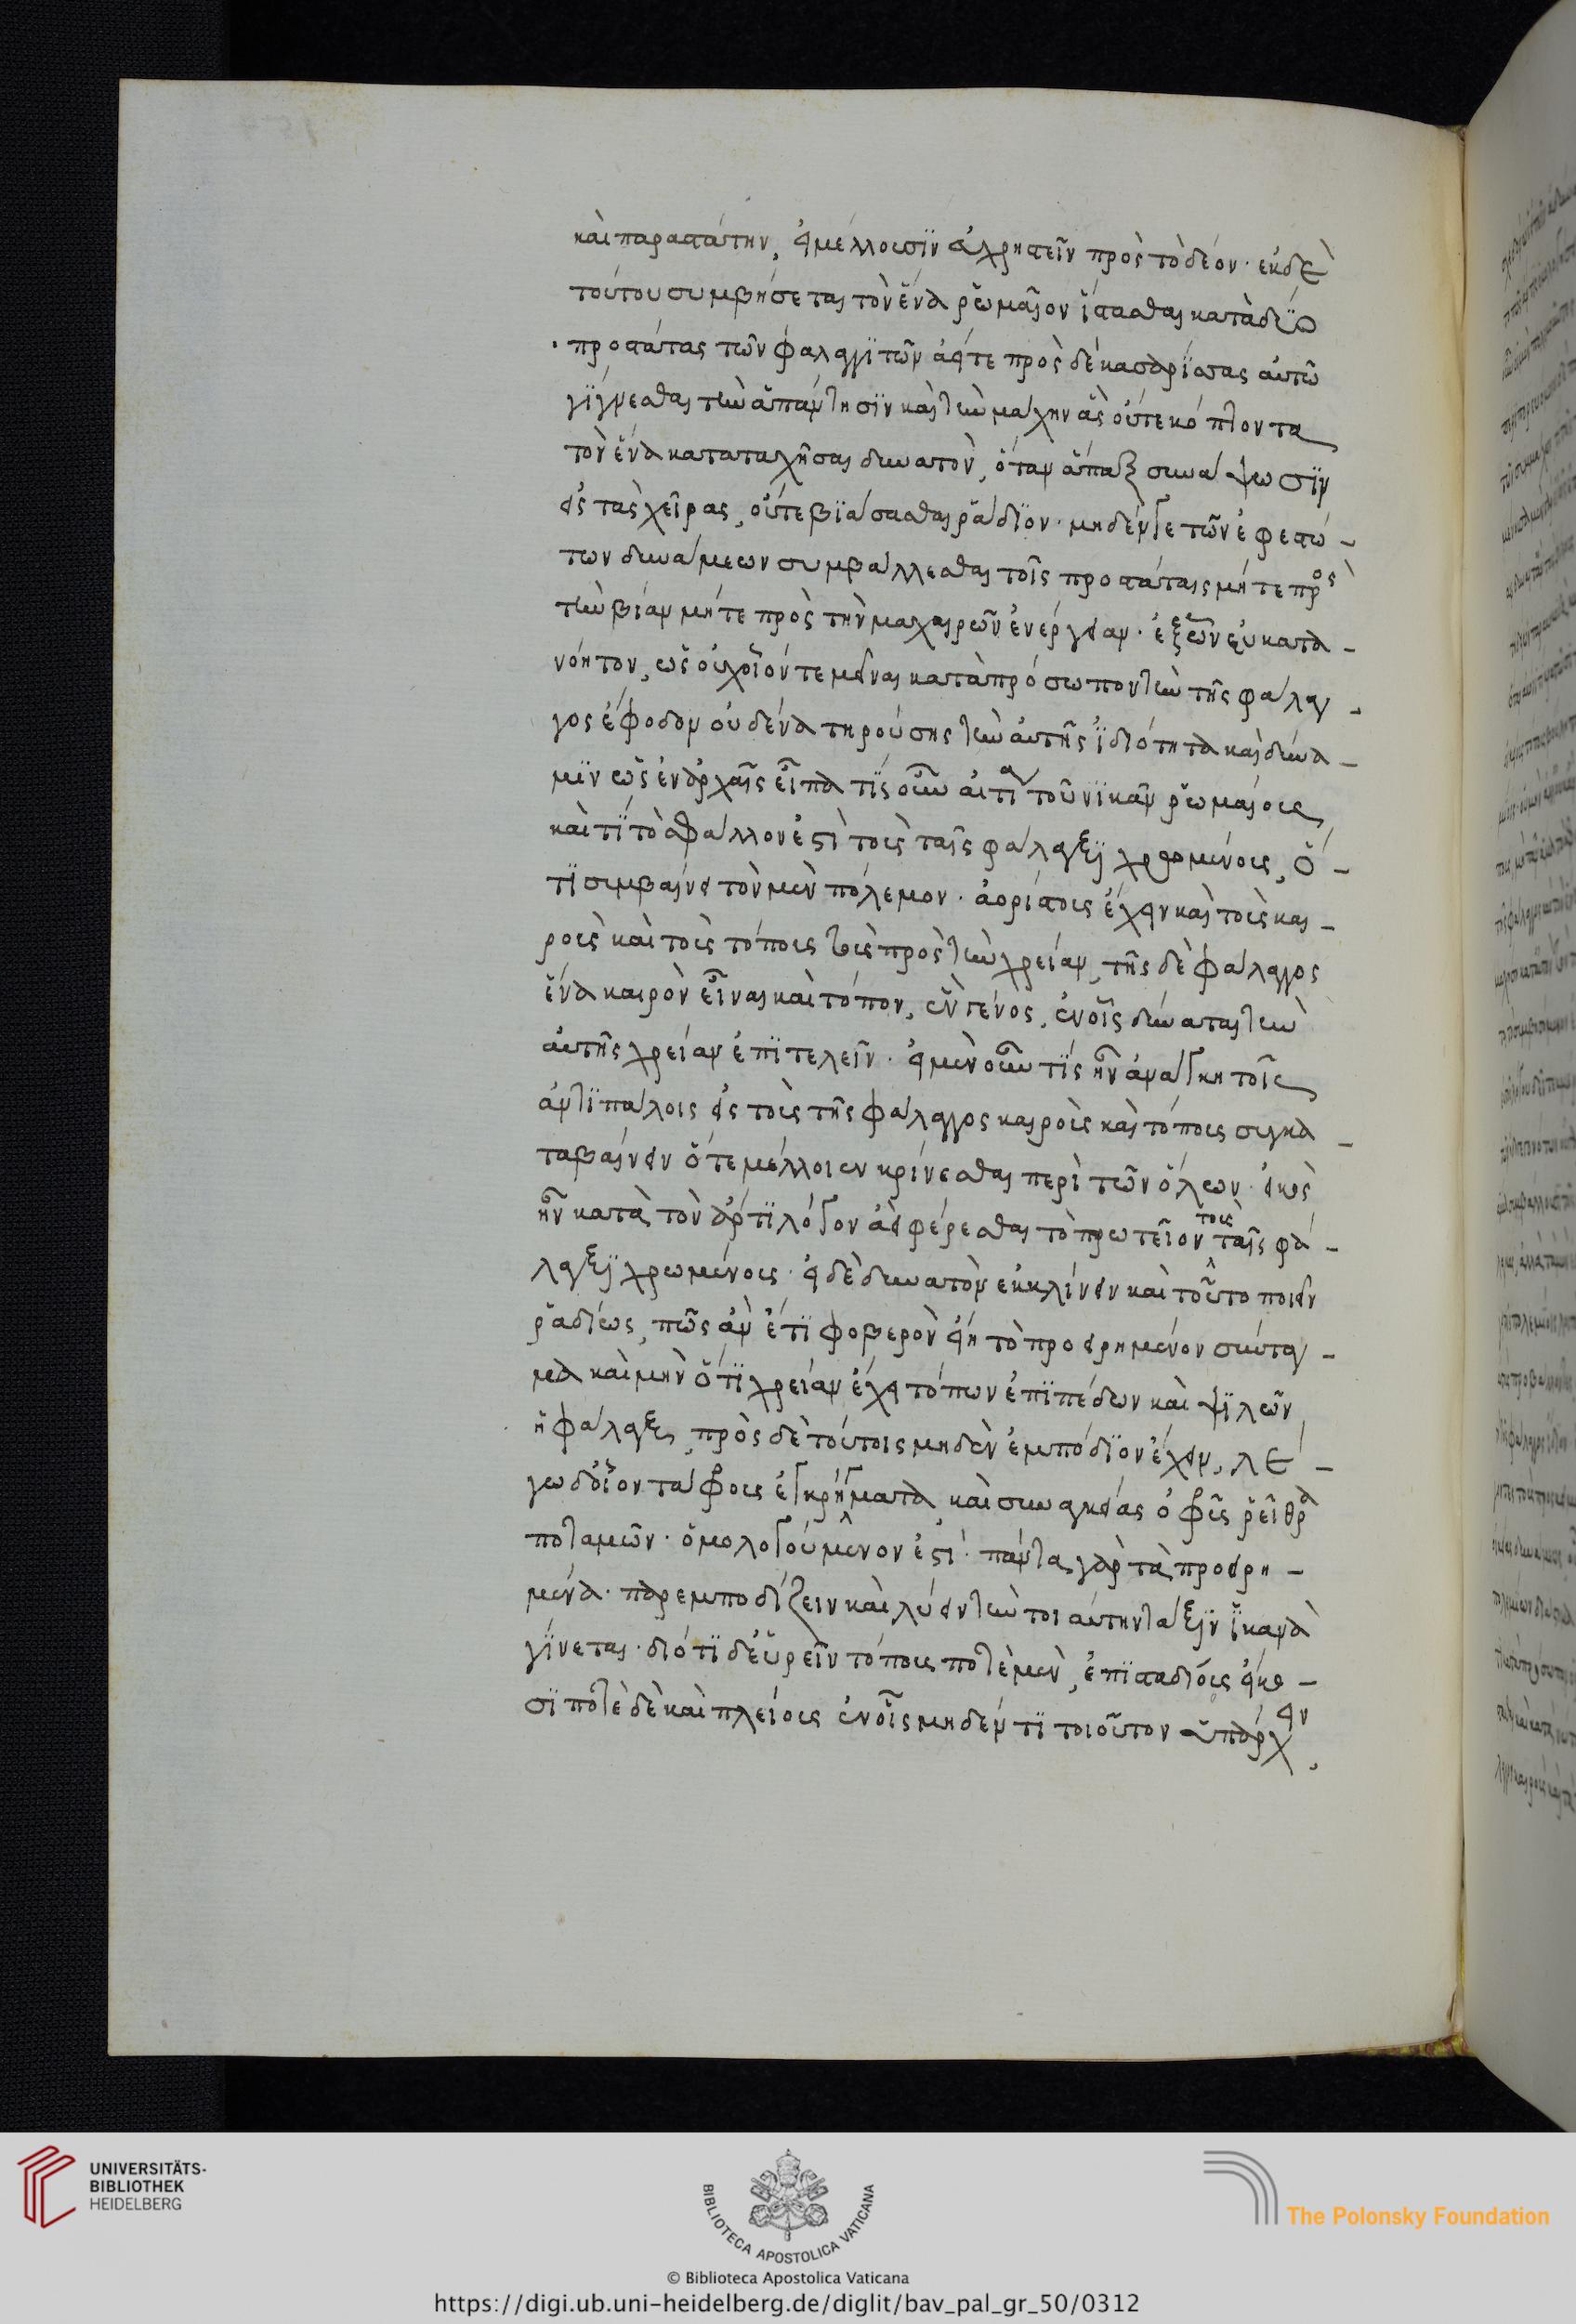 καὶ παραστάτην, εἰ μέλλουσιν εὐχρηστεῖν πρὸς τὸ δέον. ἐκ δὲ
τούτου συμβήσεται τὸν ἕνα ῥωμαῖον ἵστασθαι κατὰ δύο
προστάτας τῶν φαλαγγιτῶν ὥστε πρὸς δέκα σαρίσας αὐτῶ
γίγνεσθαι τὴν ἀπάντησιν καὶ τὴν μάχην ἃς οὔτε κόπτοντα
τὸν ἕνα καταταχῆσαι δυνατὸν, ὅταν ἅπαξ συνάψωσιν
εἰς τὰς χεῖρας, οὔτε βιάσασθαι ῥάδιον. μηδέν γε τῶν ἐφεστώ-
των δυνάμεων συμβάλλεσθαι τοῖς προστάταις μήτε πρὸς
τὴν βίαν μήτε πρὸς τὴν μαχαιρῶν ἐνέργειαν. ἐξ ὧν εὐκατα-
νόητον, ὡς οὐχ οἷόν τε μεῖναι κατὰ πρόσωπον τὴν τῆς φάλαγ-
γος ἔφοδον οὐδένα τηρούσης τὴν αὐτῆς ἰδιότητα καὶ δύνα-
μιν ὡς ἐν ἀρχαῖς εἶπα τίς οὖν αἰτία τοῦ νικᾶν ῥωμαίους
καὶ τί τὸ σφάλλον ἐστὶ τοὺς ταῖς φάλαγξι χρωμένους, ὅ-
τι συμβαίνει τὸν μὲν πόλεμον. ἀορίστους ἔχειν καὶ τοὺς και-
ροὺς καὶ τοὺς τόπους τοὺς πρὸς τὴν χρείαν, τῆς δὲ φάλαγγος
ἕνα καιρὸν εἶναι καὶ τόπον, ἓν γένος, ἐν οἷς δύναται τὴν
αὐτῆς χρείαν ἐπιτελεῖν. εἰ μὲν οὖν τις ἦν ἀνάγκη τοῖς
ἀντιπάλοις εἰς τοὺς τῆς φάλαγγος καιροὺς καὶ τόπους συγκα-
ταβαίνειν ὅτε μέλλοιεν κρίνεσθαι περὶ τῶν ὅλων. εἰκὸς
ἦν κατὰ τὸν ἄρτι λόγον ἀεὶ φέρεσθαι τὸ πρωτεῖον τοὺς ταῖς φά-
λαγξι χρωμένους. εἰ δὲ δυνατὸν ἐκκλίνειν καὶ τοῦτο ποιεῖν
ῥαδίως, πῶς ἂν ἔτι φοβερὸν εἴη τὸ προειρημένον σύνταγ-
μα καὶ μὴν ὅτι χρείαν ἔχει τόπων ἐπιπέδων καὶ ψιλῶν
ἡ φάλαγξ, πρὸς δὲ τούτοις μηδὲν ἐμπόδιον ἔχειν, λέ-
γω δ' οἷον τάφρους ἐκρήγματα καὶ συναγκείας ὀφρῦς ῥεῖθρα
ποταμῶν. ὁμολογούμενον ἐστι. πάντα γὰρ τὰ προειρη-
μένα. παρεμποδίζειν καὶ λύειν τὴν τοιαύτην τάξιν ἱκανὰ
γίνεται. διότι δ' εὑρεῖν τόπους ποτὲ μὲν, ἐπὶ σταδίους εἴκο-
σι ποτὲ δὲ καὶ πλείους ἐν οἷς μηδέν τι τοιοῦτον ὑπάρχειν,
UNIVERSITÄTS-
BIBLIOTHEK
HEIDELBERG
BIBLIOTECA APOSTOLICA VATICANA
The Polonsky Foundation
© Biblioteca Apostolica Vaticana
https://digi.ub.uni-heidelberg.de/diglit/bav_pal_gr_50/0312